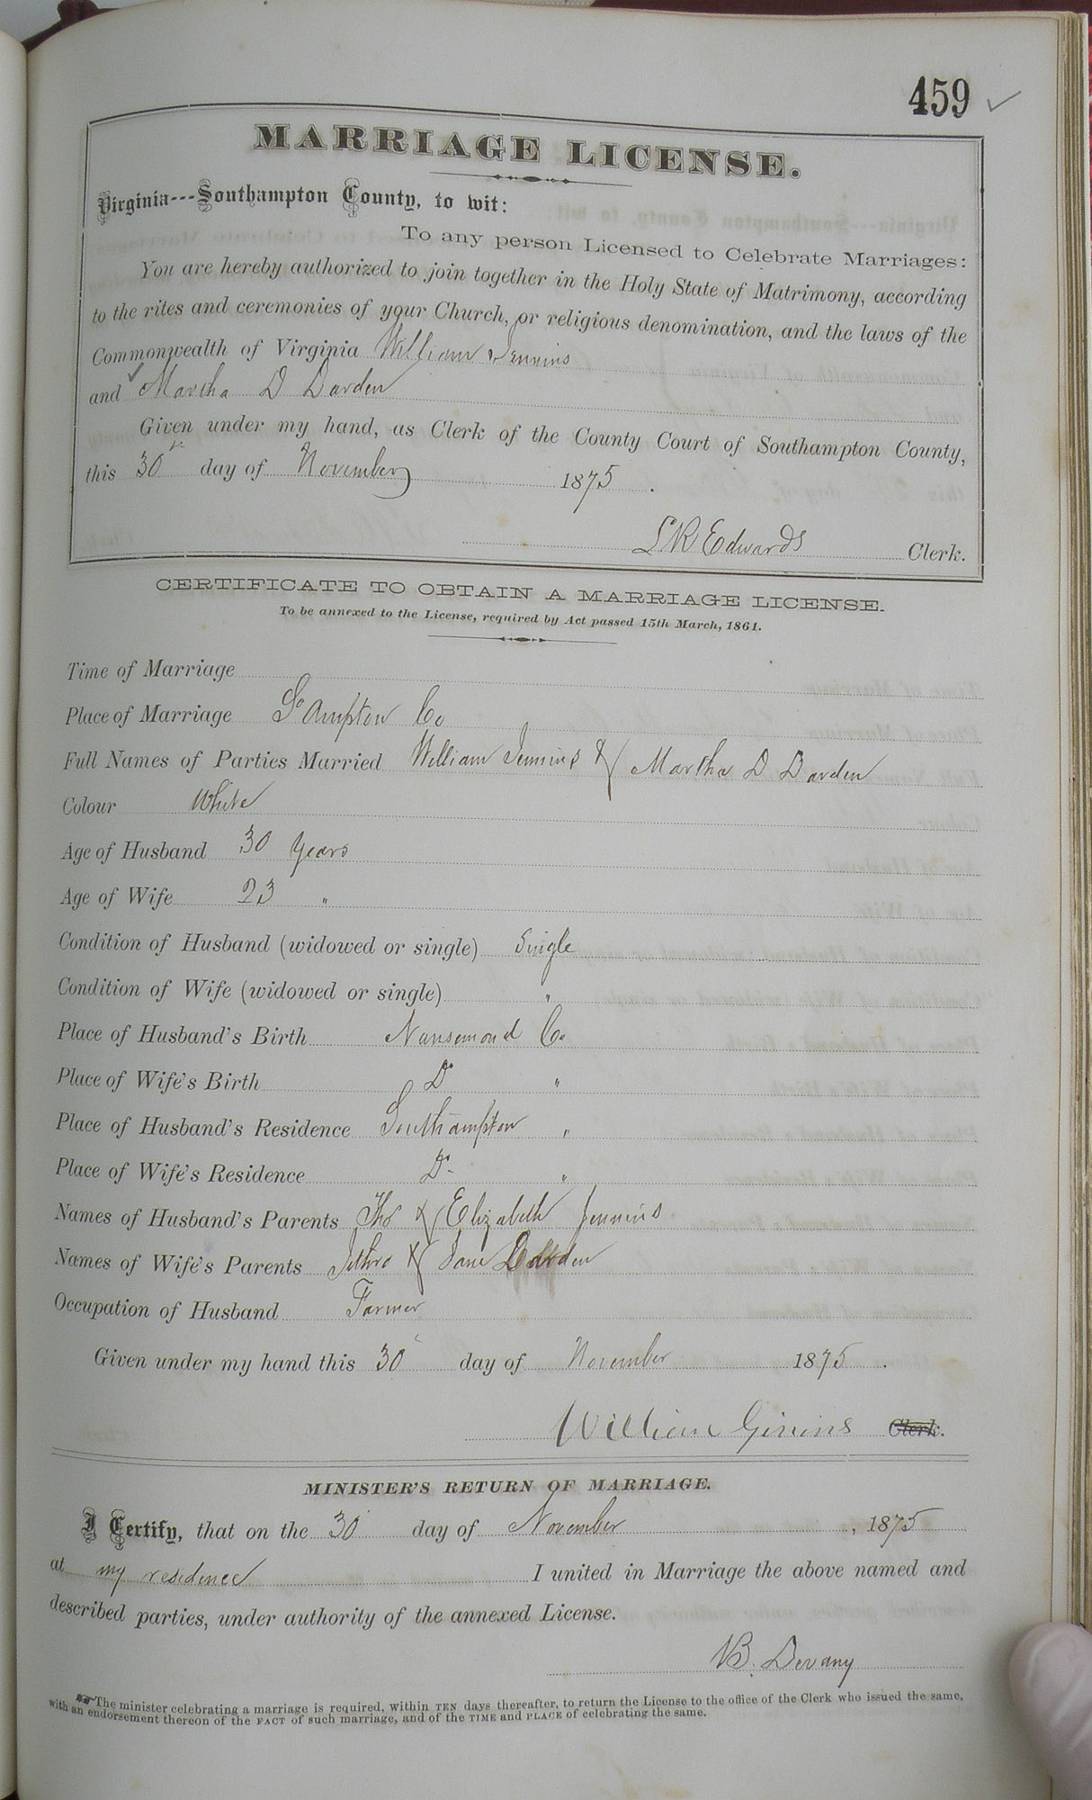 459 ✓
MARRIAGE LICENSE.
Virginia---Southampton County, to wit:
To any person Licensed to Celebrate Marriages:
You are hereby authorized to join together in the Holy State of Matrimony, according
to the rites and ceremonies of your Church, or religious denomination, and the laws of the
Commonwealth of Virginia William Jennins
and ✓ Martha D Darden
Given under my hand, as Clerk of the County Court of Southampton County,
this 30 day of November 1875.
L R Edwards Clerk.
CERTIFICATE TO OBTAIN A MARRIAGE LICENSE.
To be annexed to the License, required by Act passed 15th March, 1861.
Time of Marriage
Place of Marriage So Ampton Co
Full Names of Parties Married William Jennins & Martha D Darden
Colour White
Age of Husband 30 Years
Age of Wife 23 "
Condition of Husband (widowed or single) Single
Condition of Wife (widowed or single) "
Place of Husband's Birth Nansemond Co
Place of Wife's Birth Do "
Place of Husband's Residence Southampton "
Place of Wife's Residence Do "
Names of Husband's Parents Thos & Elizabeth Jennins
Names of Wife's Parents Jethro & Jane Darden
Occupation of Husband Farmer
Given under my hand this 30 day of November 1875.
William Ginins Clerk.
MINISTER'S RETURN OF MARRIAGE.
I Certify, that on the 30 day of November, 1875
at my residence I united in Marriage the above named and
described parties, under authority of the annexed License.
Devany
The minister celebrating a marriage is required, within TEN days thereafter, to return the License to the office of the Clerk who issued the same,
with an endorsement thereon of the FACT of such marriage, and of the TIME and PLACE of celebrating the same.